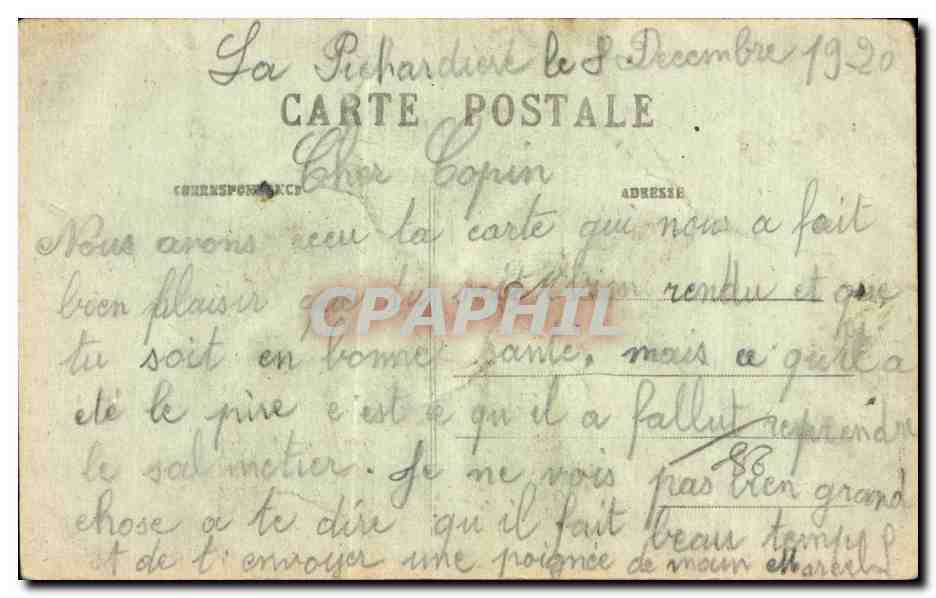 La Pichardiere le 8 Decembre 1920
CARTE POSTALE
Cher Copin
CORRESPONDANCE
ADRESSE
Nous avons recu ta carte qui nous a fait
bien plaisir que tu soit bien rendu et que
CPAPHIL
tu soit en bonne sante. mais ce qu'il a
été le pire c'est ce qu il a fallut reprendre
86
le sal metier. Je ne vois pas bien grand
chose a te dire qu il fait beau temps
et de t'envoyer une poignée de main Marcel